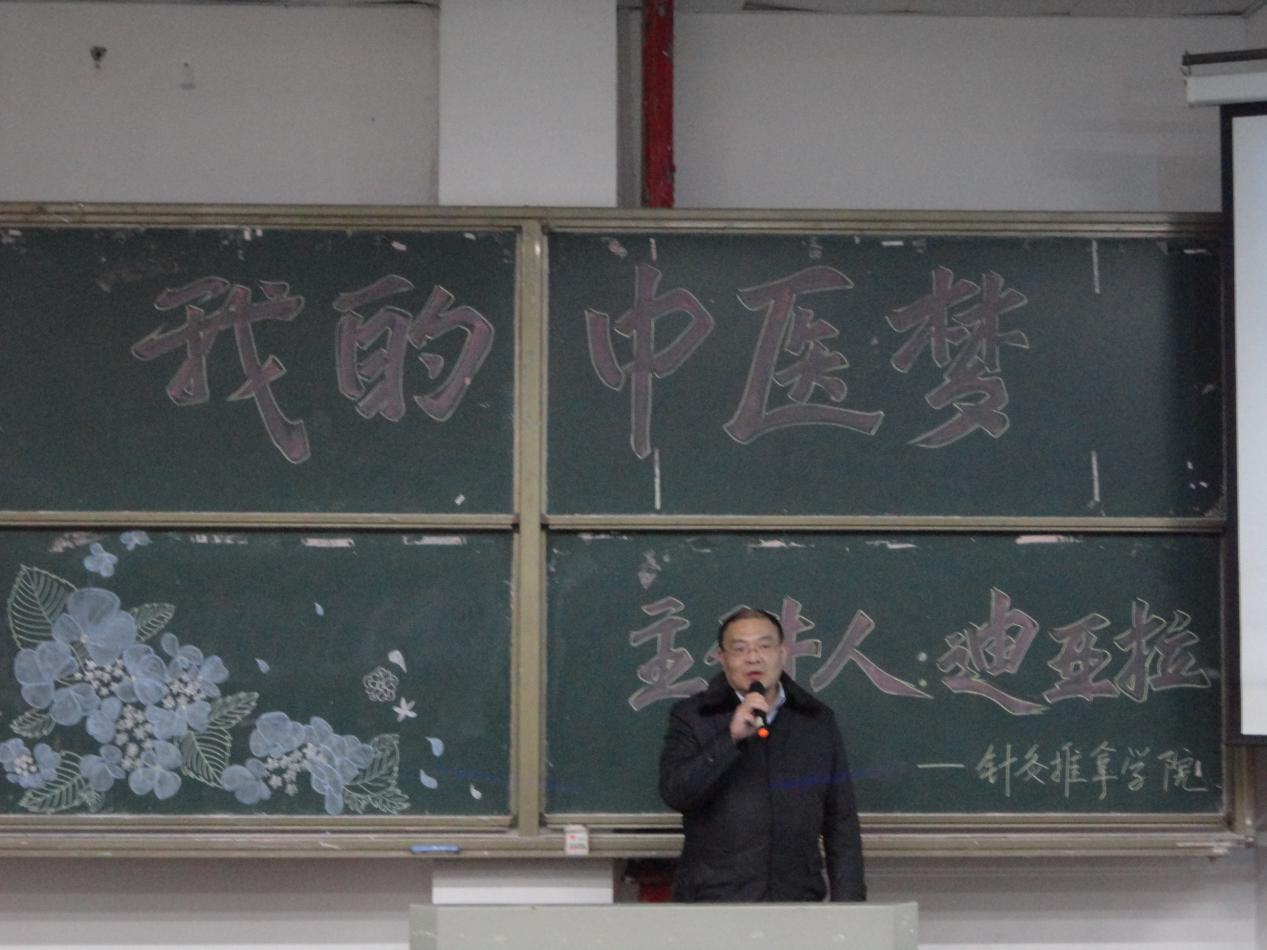 我的中医梦
主 人：迪亚拉
—针灸推拿学院